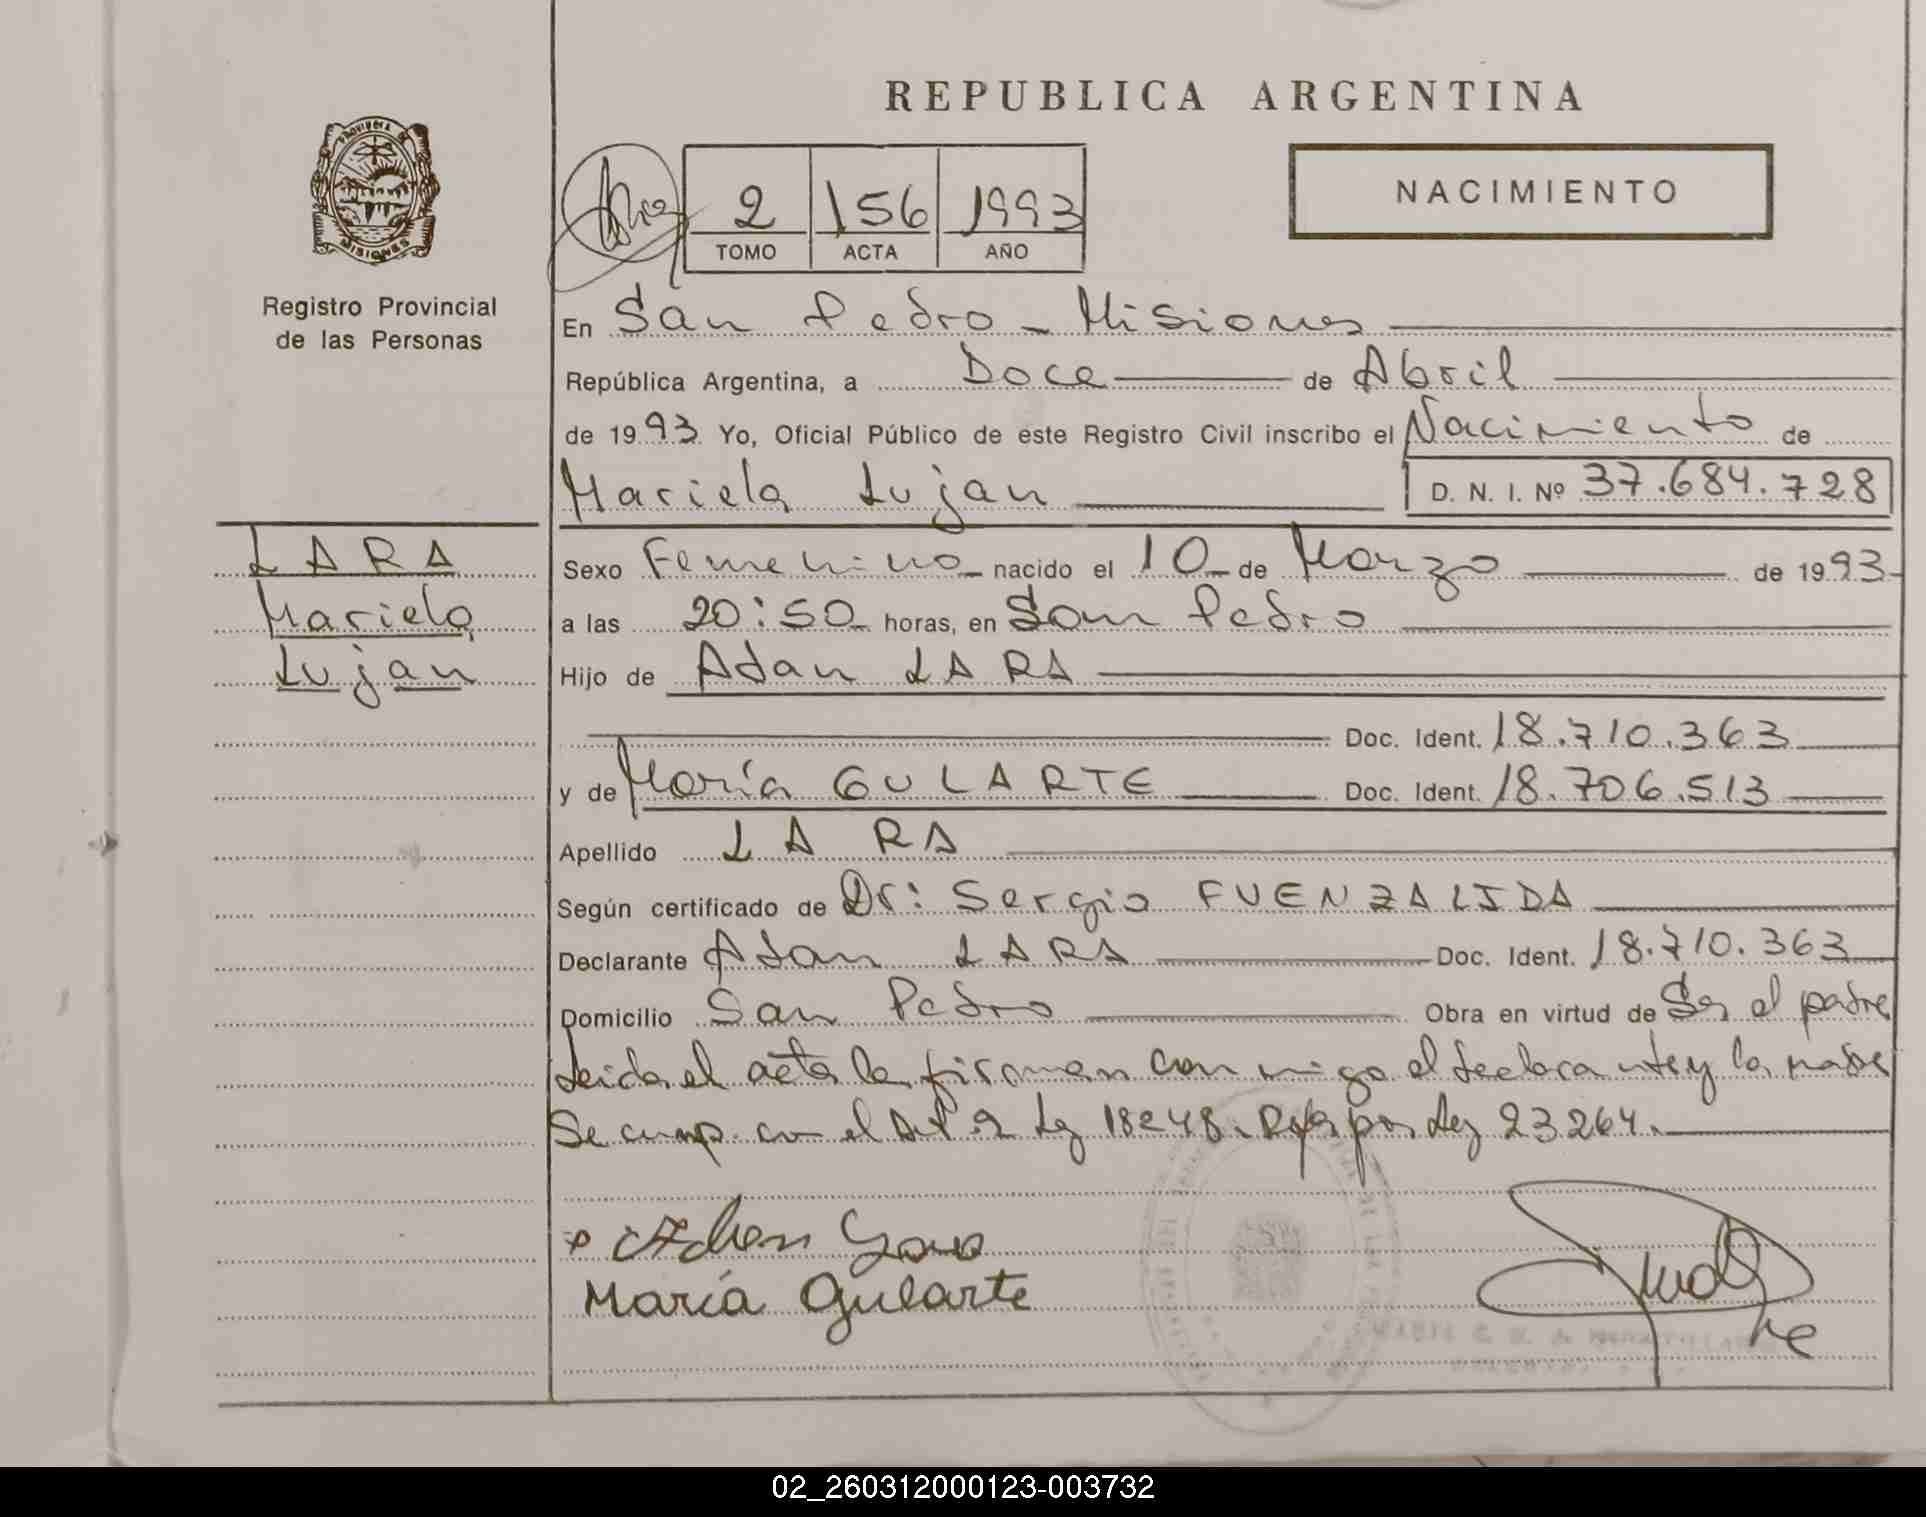 REPUBLICA ARGENTINA
NACIMIENTO
PROVINCIA DE
MISIONES
Registro Provincial
de las Personas
2 156 1993
TOMO ACTA AÑO
En San Pedro - Misiones
República Argentina, a Doce de Abril
de 1993 Yo, Oficial Público de este Registro Civil inscribo el Nacimiento de
Mariela Lujan D. N. I. Nº 37.684.728
LARA
Mariela
Lujan
Sexo Femenino nacido el 10 de Marzo de 1993
a las 20:50 horas, en San Pedro
Hijo de Adan LARA
Doc. Ident. 18.710.363
y de María GULARTE Doc. Ident. 18.706.513
Apellido LARA
Según certificado de Dr: Sergio FUENZALIDA
Declarante Adan LARA Doc. Ident. 18.710.363
Domicilio San Pedro Obra en virtud de Ser el padre
Leida el acta la firman conmigo el declarante y la madre
Se cump. con el Art 2 Ley 18248. por Ley 23264.
Adan Lara
María Gularte
02_260312000123-003732